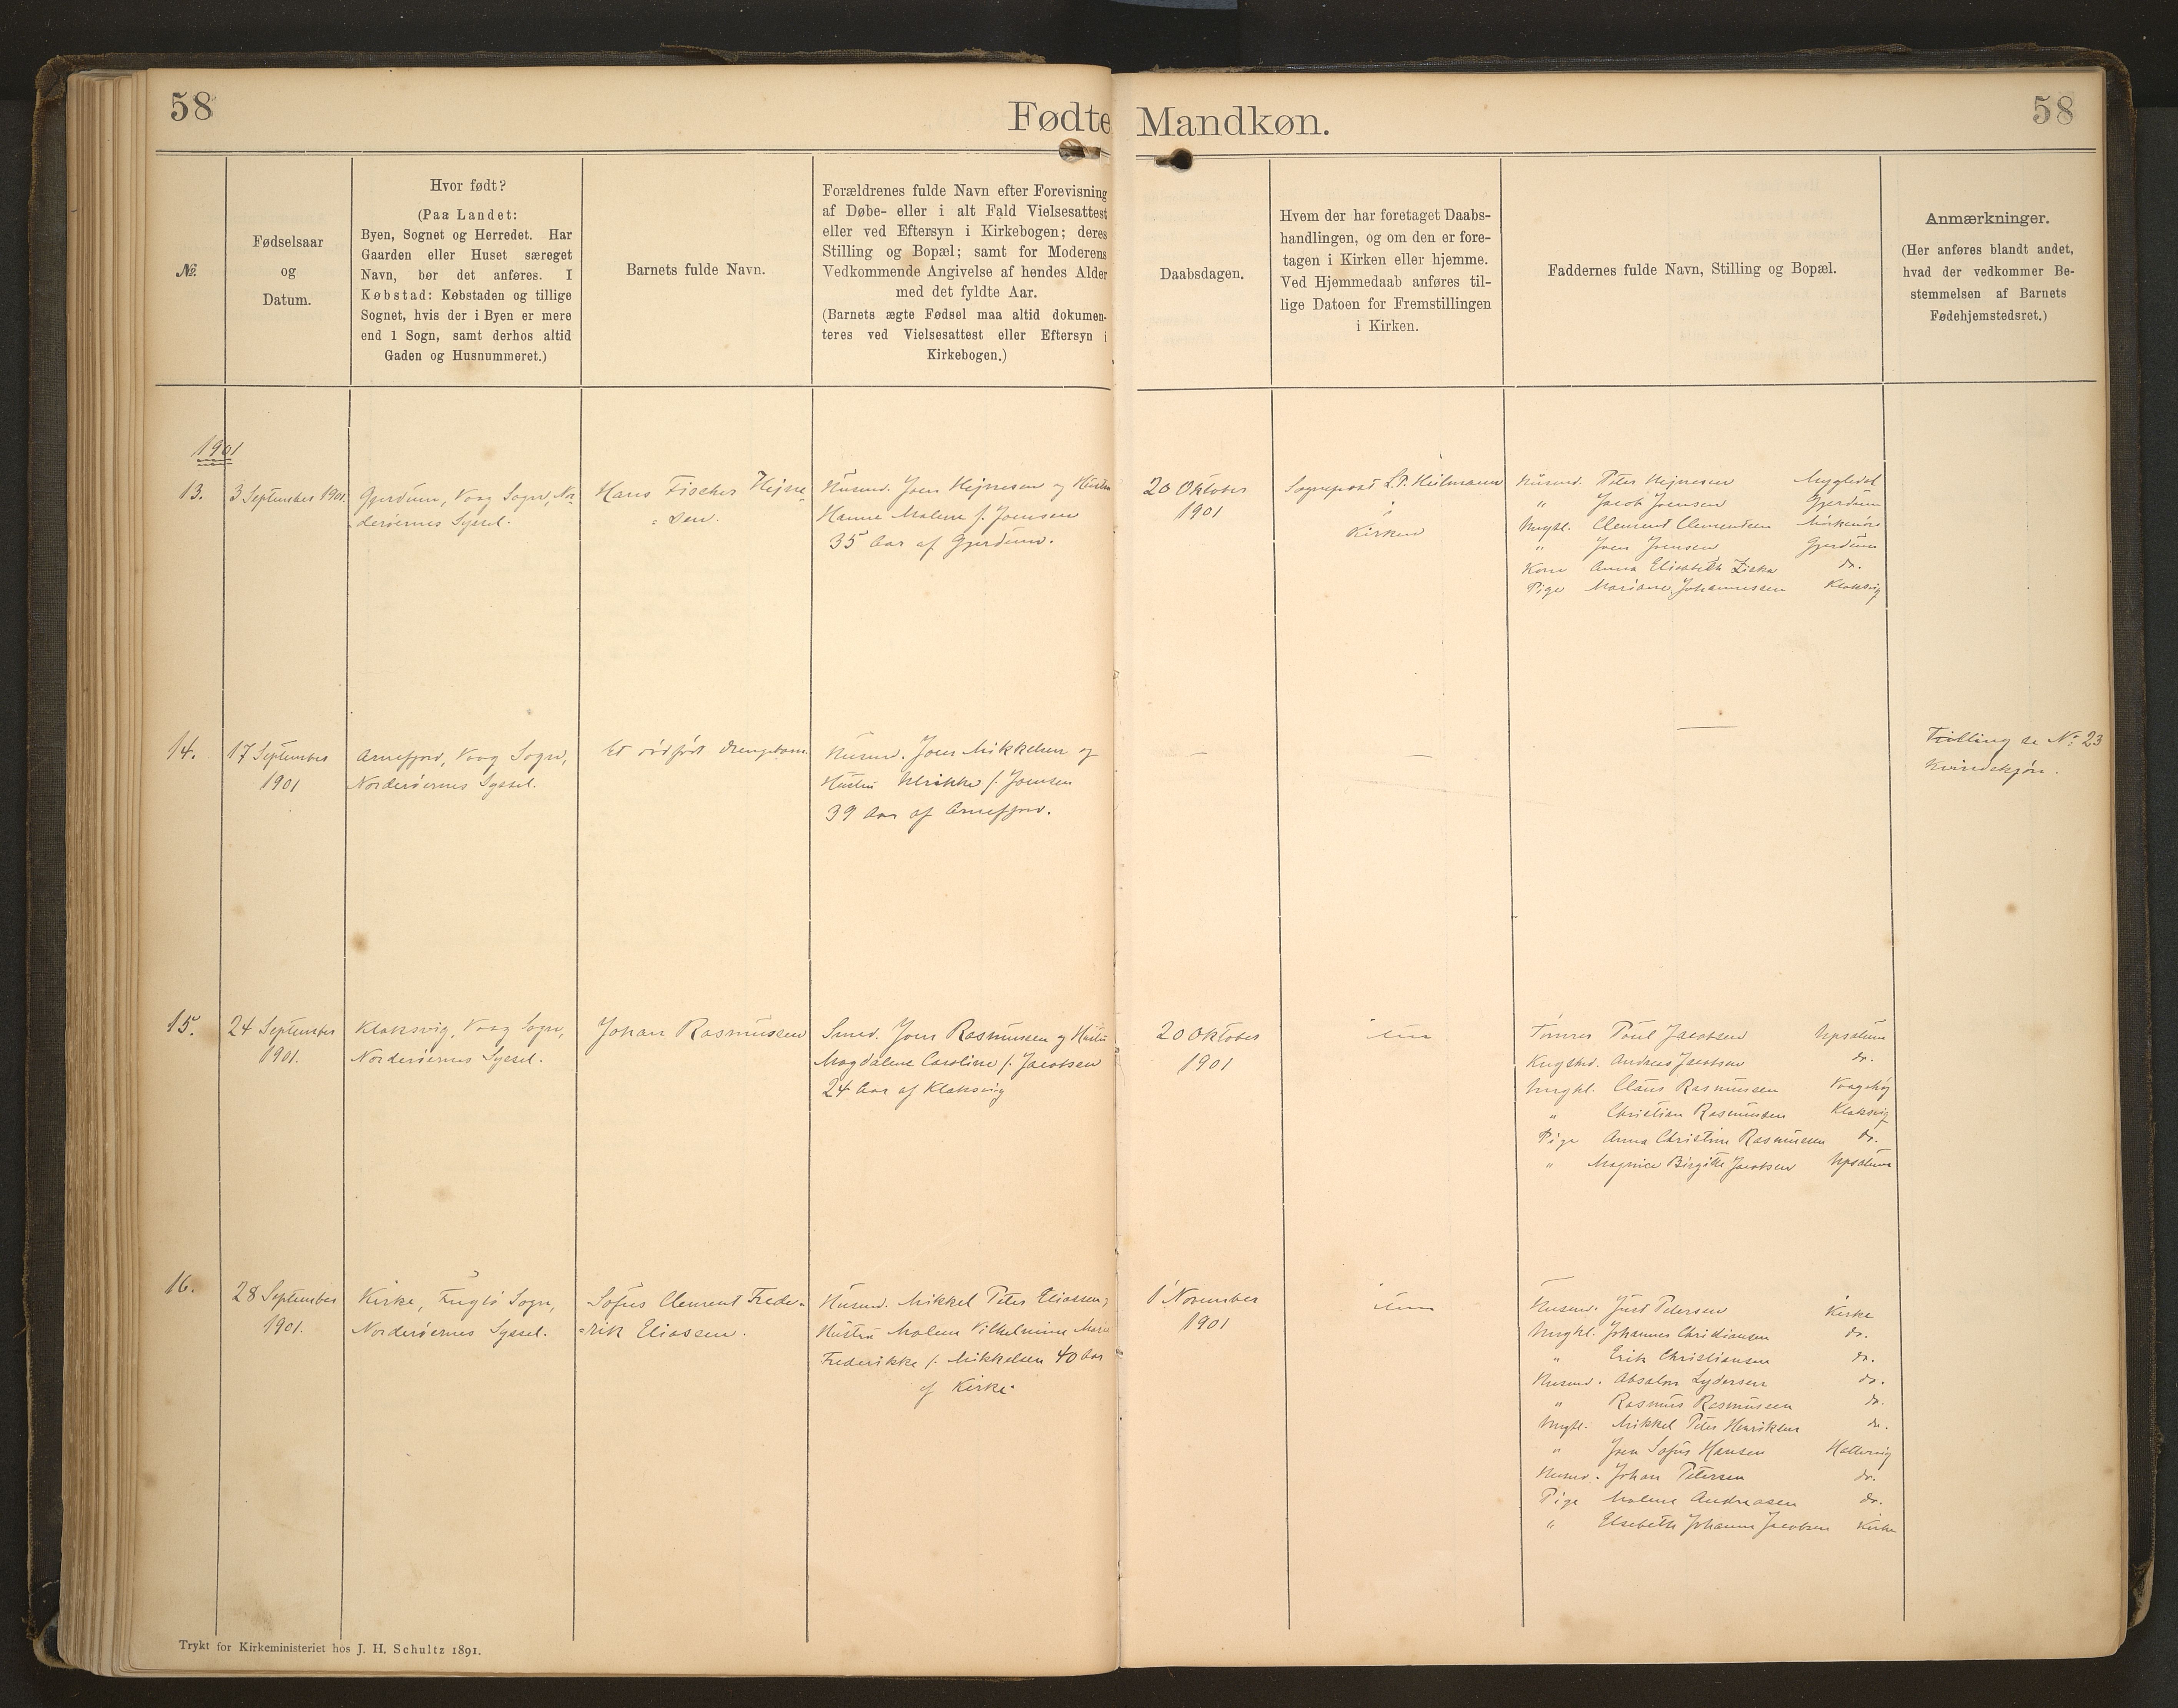 58
Fødte Mandkøn.
58
№
Fødselsaar
og
Datum.
Hvor født?
(Paa Landet:
Byen, Sognet og Herredet. Har
Gaarden eller Huset særeget
Navn, bør det anføres. I
Købstad: Købstaden og tillige
Sognet, hvis der i Byen er mere
end 1 Sogn, samt derhos altid
Gaden og Husnummeret.)
Barnets fulde Navn.
Forældrenes fulde Navn efter Forevisning
af Døbe- eller i alt Fald Vielsesattest
eller ved Eftersyn i Kirkebogen; deres
Stilling og Bopæl; samt for Moderens
Vedkommende Angivelse af hendes Alder
med det fyldte Aar.
(Barnets ægte Fødsel maa altid dokumen-
teres ved Vielsesattest eller Eftersyn i
Kirkebogen.)
Daabsdagen.
Hvem der har foretaget Daabs-
handlingen, og om den er fore-
tagen i Kirken eller hjemme.
Ved Hjemmedaab anføres til-
lige Datoen for Fremstillingen
i Kirken.
Faddernes fulde Navn, Stilling og Bopæl.
Anmærkninger.
(Her anføres blandt andet,
hvad der vedkommer Be-
stemmelsen af Barnets
Fødehjemstedsret.)
1901
13.
3 September 1901.
Gjerdum, Vaag Sogn, Nor
derøernes Syssel.
Hans Fischer Hejne
-sen.
Husmd. Joen Hejnesen og Hustru
Hanne Malene f. Joensen
35 Aar af Gjerdum.
20 Oktober
1901
Sognepræst L.P. Heilmann
i
Kirken
Husmd. Peter Hejnesen Mygledal
" Jacob Joensen Gjerdum
Ungkl. Clement Clementsen
" Joen Joensen Gjerdum
Kone Anna Elisabeth Ziska do.
Pige Mariane Johannessen Klaksvig
14.
17 September
1901
Arnefjord, Vaag Sogn,
Norderøernes Syssel.
Et dødfødt Drengebarn
Husmd. Joen Mikkelsen og
Hustru Ulrikke f. Joensen
39 Aar af Arnefjord.
—
—
—
Tvilling se No: 23
Kvindekjøn.
15.
24 September
1901.
Klaksvig, Vaag Sogn,
Norderøernes Syssel.
Johan Rasmussen
Smed. Joen Rasmussen og Hustru
Magdalene Caroline f. Jacobsen
24 Aar af Klaksvig
20 Oktober
1901
item
Tømrer Poul Jacobsen Upsalum
Kngsbd. Andreas Jacobsen do.
Ungkl. Claus Rasmussen
" Christian Rasmussen Klaksvig
Pige Anna Christine Rasmussen do.
" Magnia Birgitte Jacobsen Upsalum
16.
28 September
1901.
Kirke, Fuglø Sogn,
Norderøernes Syssel.
Sofus Clement Frede-
-rik Eliassen.
Husmd. Mikkel Peter Eliassen;
Hustru Malene Vilhelmine Marie
Frederikke f. Mikkelsen 40 Aar
af Kirke.
1' November
1901
item
Husmd. Just Petersen Kirke
Ungkl. Johannes Christiansen do.
" Erik Christiansen do.
Husmd. Absalon Lydersen do.
" Rasmus Rasmussen do.
Ungkl. Mikkel Peter Henriksen do.
" Joen Sofus Hansen Hattervig
Husmd. Johan Petersen do.
Pige Malene Andreasen do.
" Elsebeth Johanne Jacobsen Kirke
Trykt for Kirkeministeriet hos J. H. Schultz 1891.